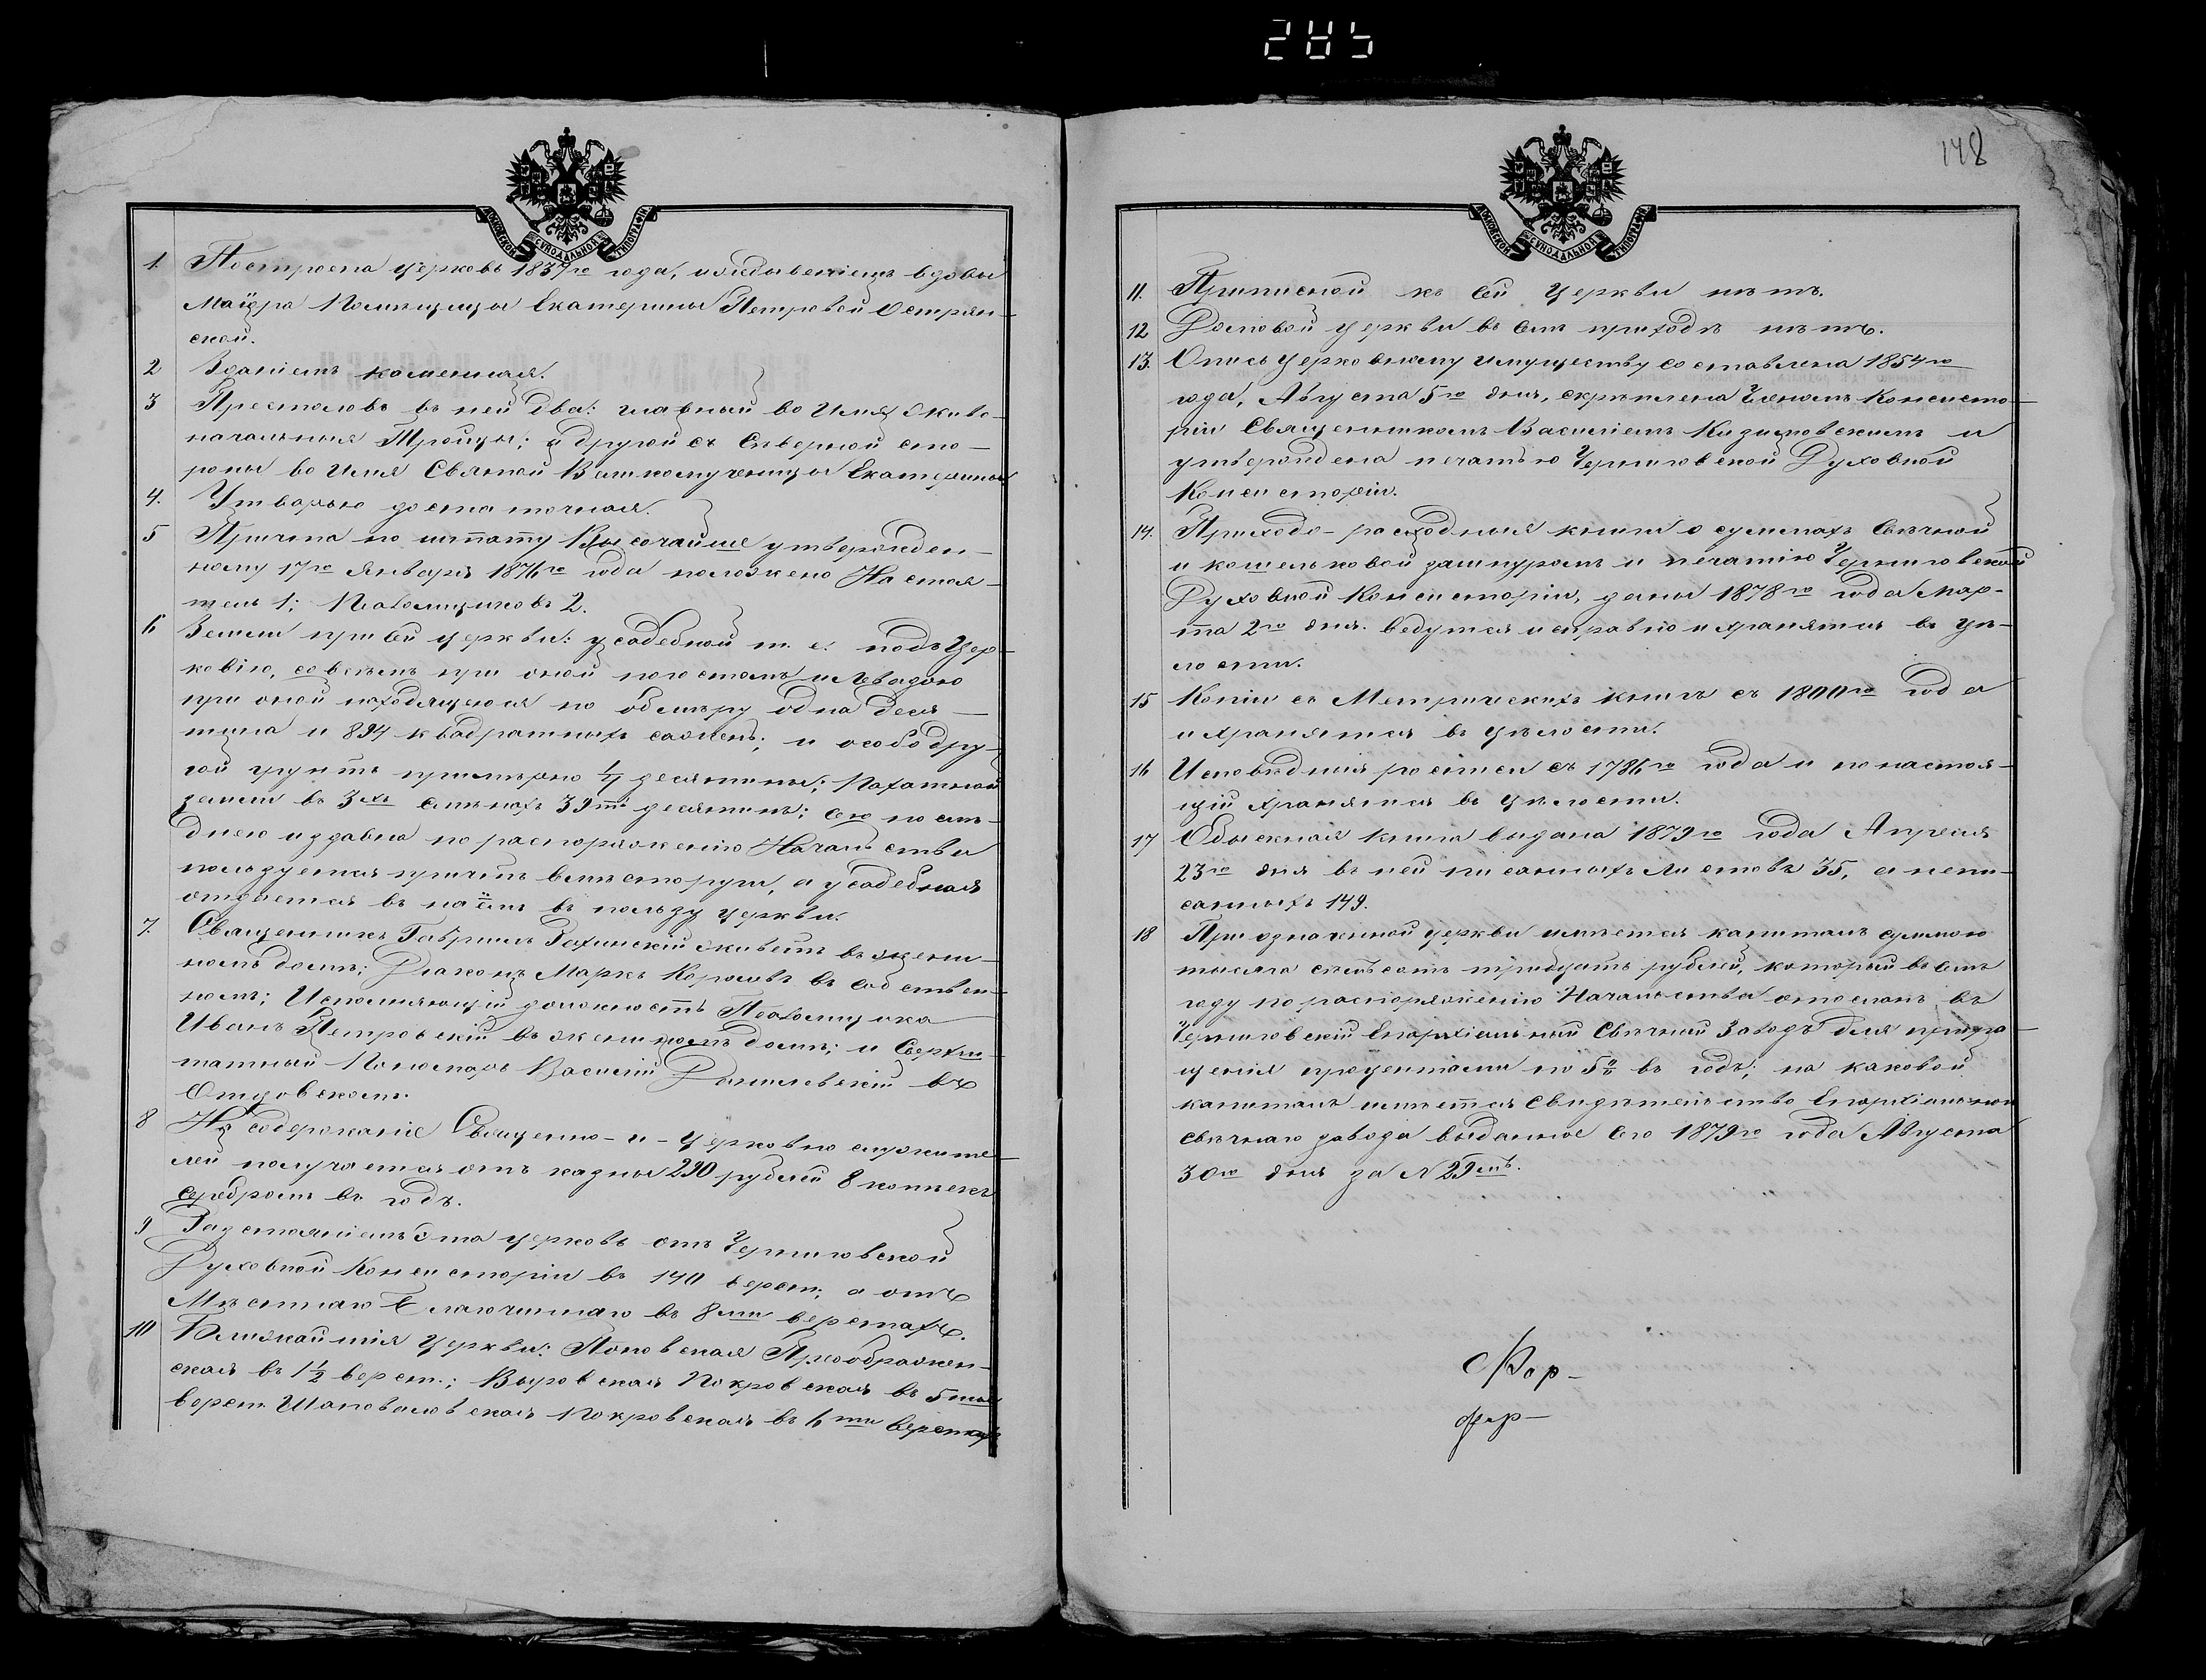 285
148
МОСКОВСКОЙ СУНОДАЛЬНОЙ ТИПОГРАФІИ
1. Построена церковь 1837го года, иждивеніемъ вдовы
Маіора Помѣщицы Екатерины Петровой Острян-
ской.
2 Зданіемъ каменная.
3 Престоловъ въ ней два: главный во Имя Живо-
начальныя Тройцы; а другой съ Сѣверной сто-
роны во Имя Святой Великомученицы Екатерины
4. Утварью достаточная.
5 Причта по штату Высочайше утвержден-
ному 17го Января 1876го года положено Настоя-
тель 1; Псаломщиковъ 2.
6 Земли при сей церкви: усадебной т. е. подъ Цер-
ковію, со всѣмъ при оной погостомъ и Левадою
при оной находящеюся по обмѣру одна деся-
тина и 894 квадратныхъ сажень; и особо дру-
гой грунтъ примѣрно 1/4 десятины; Пахатной
земли въ 3хъ смѣнахъ 39ть десятинъ; сею послѣ-
днею издавна по распоряженію Начальства
пользуется причтъ а усадебная
отдается въ наёмъ въ пользу церкви.
7. Священникъ Гавріилъ живетъ въ
номъ домѣ; Діаконъ Маркъ Королевъ въ собствен-
номъ; Исполняющій должность Псаломщика
Иванъ Петровскій въ домѣ; и Сверхш-
татный Пономарь Василій Данилевскій въ
Отцовскомъ.
8 На содержаніе Священно-и-церковно служите-
лей получается отъ казны 290 рублей 8 копѣекъ
серебромъ въ годъ.
9 Разстояніемъ эта церковь отъ Черниговской
Духовной Консисторіи въ 140 верст; а отъ
Мѣстнаго Благочиннаго въ 8ми верстахъ.
10 Ближайшія Церкви: Поповская Преображен-
ская въ 1½ верст.; Выровская Покровская въ 5ти
верст. Шаповаловская Покровская въ 6ти верстахъ
МОСКОВСКОЙ СУНОДАЛЬНОЙ ТИПОГРАФІИ
11. Приписной къ сей Церкви нѣтъ.
12 Домовой церкви въ семъ приходѣ нѣтъ.
13. Опись церковному имуществу составлена 1854го
года, Августа 5го дня, скрѣплена Членомъ Консисто-
ріи Священникомъ Василіемъ и
утверждена печатью Черниговской Духовной
Консисторіи.
14. Приходо-расходныя книги о суммахъ Свѣчной
и кошельковой зашнуромъ и печатію Черниговской
Духовной Консисторіи, даны 1878го года Мар-
та 2го дня. Ведутся исправно и хранятся въ цѣ-
лости.
15 Копіи съ Метрическихъ книгъ съ 1800го года
и хранятся въ цѣлости.
16 Исповѣдныя росписи съ 1786го года и по настоя-
щій хранятся въ цѣлости.
17 Обыскная книга выдана 1879го года Апреля
23го дня въ ней писанныхъ листовъ 35, а непи-
санныхъ 149.
18 При означенной церкви имѣется капиталъ суммою
тысяча тридцать рублей, который въ семъ
году по распоряженію Начальства отосланъ въ
Черниговскій Епархіальный Свѣчный Заводъ для
щенія процентами по 5% въ годъ; на каковой
капиталъ имѣется Свидѣтельство Епархіальнаго
свѣчнаго завода выданное сего 1879го года Августа
30го дня за № 29мъ.